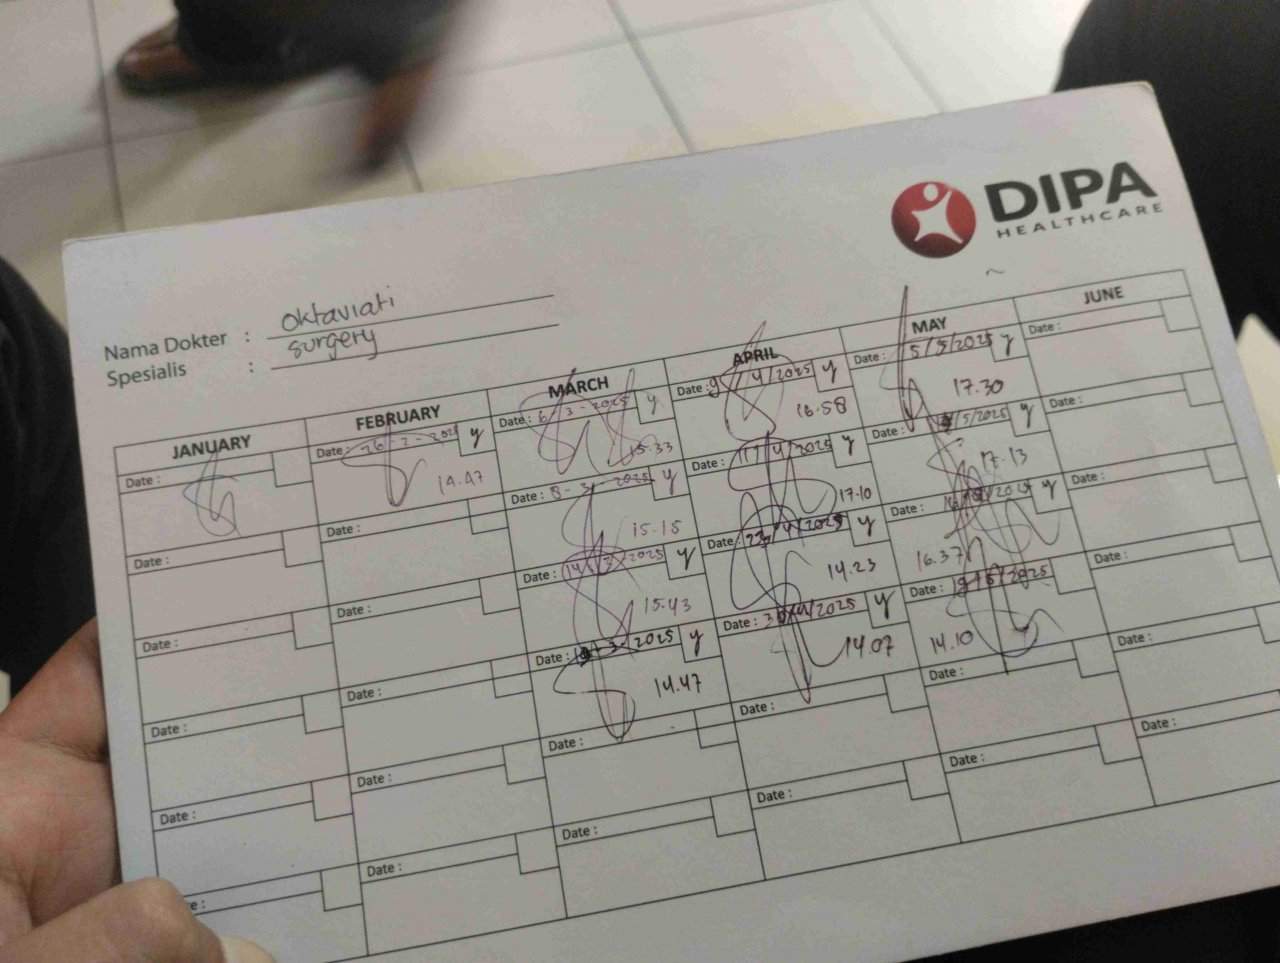 DIPA
HEALTHCARE
Nama Dokter : Oktaviati
Spesialis : surgery
JANUARY FEBRUARY MARCH APRIL MAY JUNE
Date :
Date :
Date :
Date :
Date :
Date : 26-2-2025 y
14.47
Date :
Date :
Date :
Date :
Date :
Date : 6-3-2025 y
15.33
Date : 8-3-2025 y
15.15
Date : 14/3/2025 y
15.43
Date : 3-2025 y
14.47
Date :
Date :
Date : 9/4/2025 y
16.58
11/4/2025 y
17.10
Date : 23/4/2025 y
14.23
Date : 30/4/2025 y
14.07
Date :
Date :
Date : 5/5/2025 y
17.30
Date : /5/2025 y
17.13
Date : 2025 y
16.37
Date : 2025
14.10
Date :
Date :
Date :
Date :
Date :
Date :
Date :
Date :